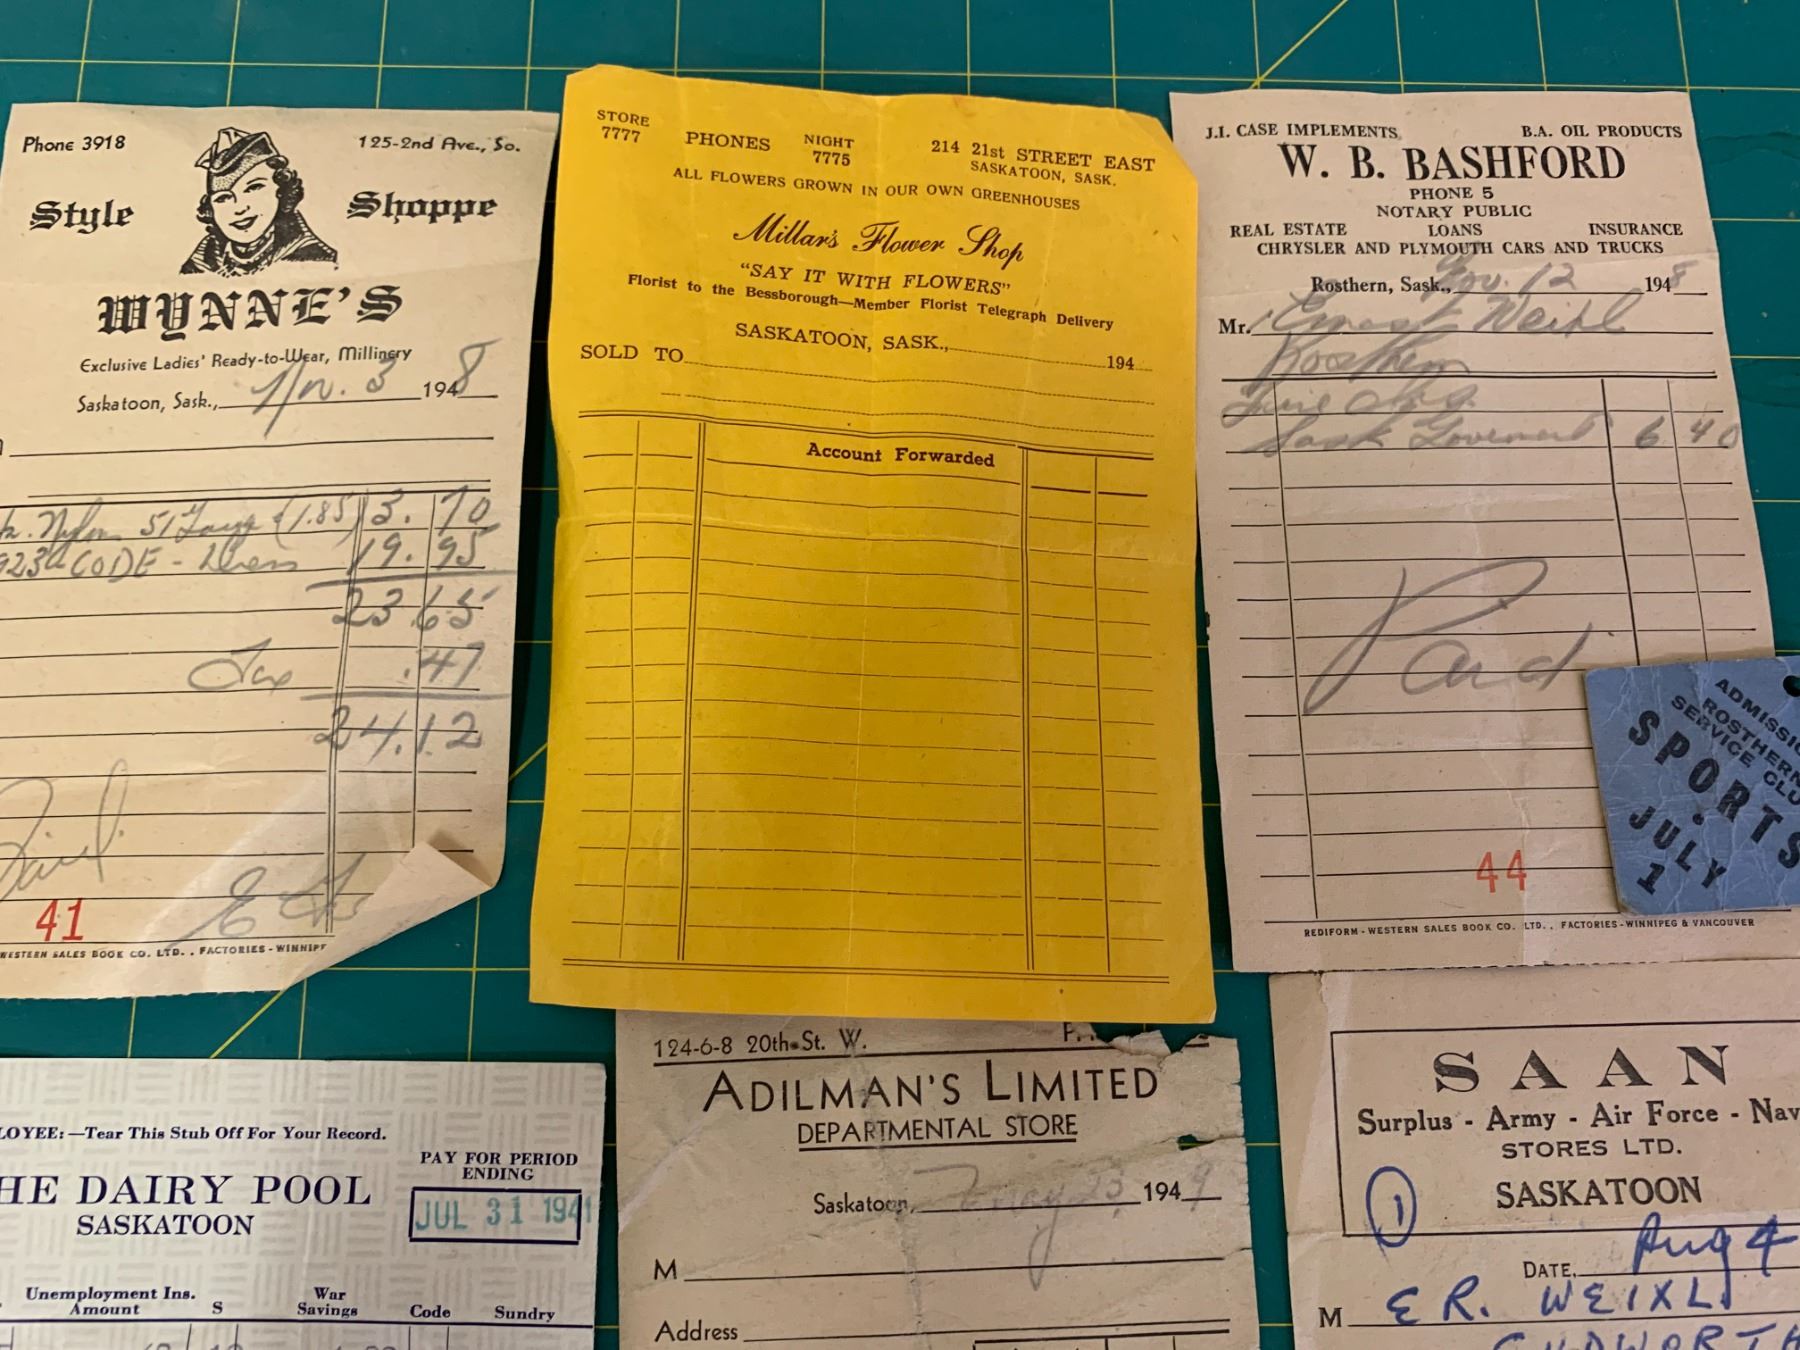 Phone 3918
125-2nd Ave., So.
Style Shoppe
WYNNE'S
Exclusive Ladies' Ready-to-Wear, Millinery
Saskatoon, Sask., Nov. 3 1948
Nylon 51 (1.85) 3.70
CODE - Dress 19.95
23.65
Tax .47
24.12
Paid.
41
WESTERN SALES BOOK CO. LTD., FACTORIES - WINNIP
STORE 7777
PHONES
NIGHT 7775
214 21st STREET EAST
SASKATOON, SASK.
ALL FLOWERS GROWN IN OUR OWN GREENHOUSES
Millar's Flower Shop
"SAY IT WITH FLOWERS"
Florist to the Bessborough—Member Florist Telegraph Delivery
SASKATOON, SASK., 194
SOLD TO
Account Forwarded
J.I. CASE IMPLEMENTS
B.A. OIL PRODUCTS
W. B. BASHFORD
PHONE 5
NOTARY PUBLIC
REAL ESTATE LOANS INSURANCE
CHRYSLER AND PLYMOUTH CARS AND TRUCKS
Rosthern, Sask., Nov. 12 1948
Mr. Ernest Weixl
Rosthern
Sask Goverment 6 40
Paid
44
REDIFORM - WESTERN SALES BOOK CO. LTD., FACTORIES - WINNIPEG & VANCOUVER
ADMISSIO
ROSTHERN
SERVICE CLU
SPORTS
JULY
1
LOYEE:—Tear This Stub Off For Your Record.
HE DAIRY POOL
SASKATOON
PAY FOR PERIOD
ENDING
JUL 31 1941
Unemployment Ins.
Amount
S
War
Savings
Code
Sundry
124-6-8 20th St. W.
ADILMAN'S LIMITED
DEPARTMENTAL STORE
Saskatoon, May 23 1949
M
Address
SAAN
Surplus - Army - Air Force - Nav
STORES LTD.
SASKATOON
1
DATE Aug 4
M ER. WEIXL
CUDWORTH